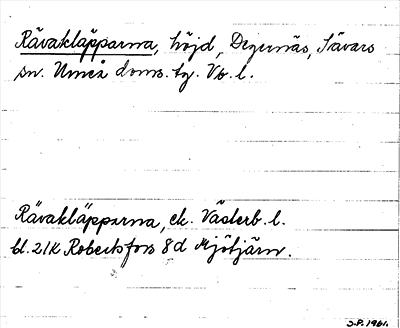 Rävakläpparna, höjd, Degernäs, Sävars
sn. Umeå doms. tg. Vb. l.
Rävakläpparna, ek. Västerb. l.
bl. 21K Robertsfors 8d Mjötjärn.
S.P. 1961.